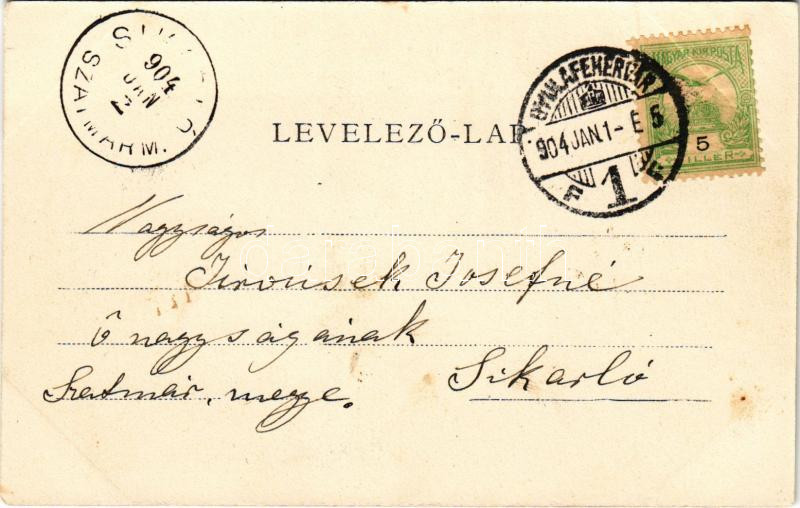 SIKÁRLÓ
904
JAN
2
SZATMÁR M.
GYULAFEHÉRVÁR
904 JAN. 1 - E 6
1
MAGYAR KIR. POSTA
5
FILLÉR
LEVELEZŐ-LAP
Nagyságos
Josefné
Ő nagyságának
Szatmár, megye. Sikarló